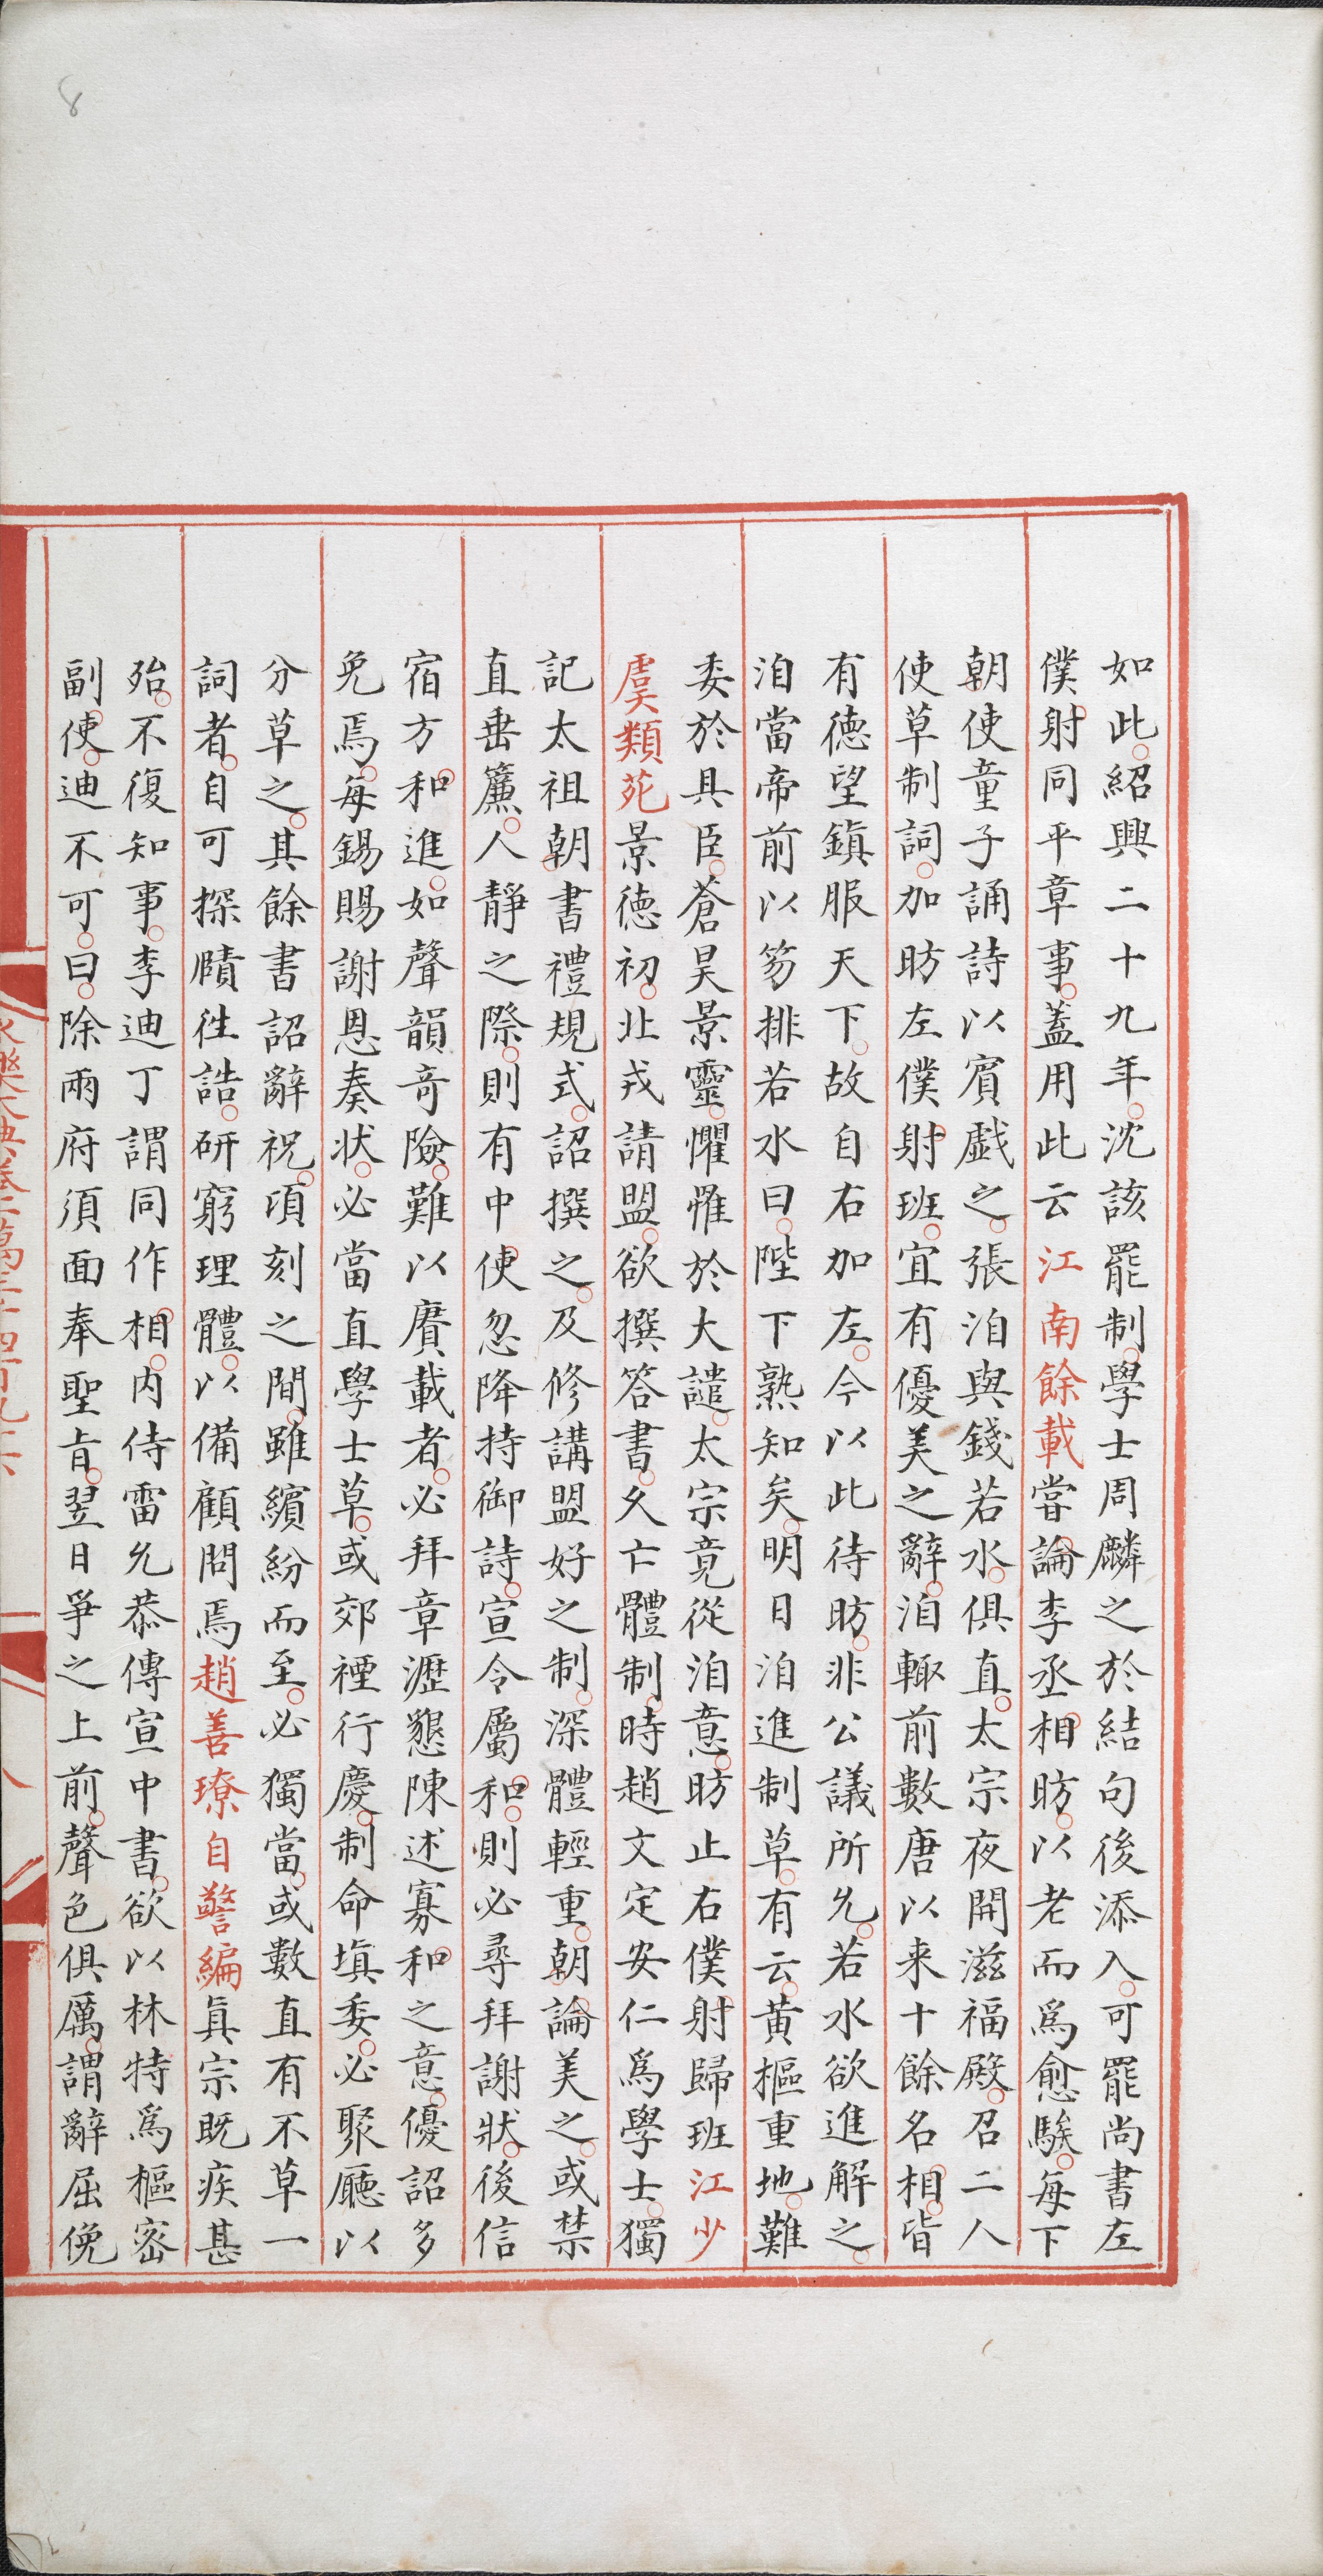 8
如此紹興二十九年沈該罷制學士周麟之於結句後添入可罷尚書左
僕射同平章事蓋用此云江南餘載嘗論李丞相昉以老而爲愈騃每下
朝使童子誦詩以賓戯之張洎與錢若水俱直太宗夜開滋福殿召二人
使草制詞加昉左僕射班宜有優美之辭洎輙前數唐以来十餘名相皆
有德望鎮服天下故自右加左今以此待昉非公議所允若水欲進解之
洎當帝前以笏排若水曰陛下熟知矣明日洎進制草有云黄樞重地難
委於具臣蒼昊景靈懼惟於大譴太宗竟從洎意昉止右僕射歸班江少
虞類苑景德初北戎請盟欲撰答書久亡體制時趙文定安仁爲學士獨
記太祖朝書禮規式詔撰之及修講盟好之制深體輕重朝論美之或禁
直垂簾人靜之際則有中使忽降持御詩宣令屬和則必尋拜謝狀後信
宿方和進如聲韻竒險難以賡載者必拜章瀝懇陳述寡和之意優詔多
免焉每錫賜謝恩奏状必當直學士草或郊禋行慶制命塡委必聚廳以
分草之其餘書詔辭祝頃刻之間雖繽紛而至必獨當或數直有不草一
詞者自可探賾徃誥研窮理體以備顧問焉趙善璙自警編眞宗既疾甚
殆不復知事李迪丁謂同作相内侍雷允恭傳宣中書欲以林特爲樞密
副使迪不可曰除兩府須面奉聖㫖翌日爭之上前聲色俱厲謂辭屈俛
永樂大典卷二萬三千四百九十六
八